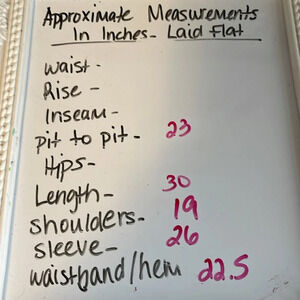 Approximate Measurements
In Inches - Laid Flat
Waist -
Rise -
Inseam -
pit to pit - 23
Hips -
Length - 30
shoulders - 19
sleeve - 26
waistband/hem 22.5